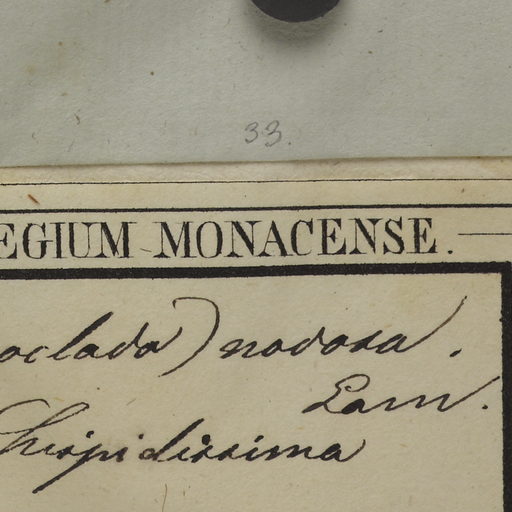 33.
EGIUM MONACENSE.
oclada) nodosa.
Lam.
hispidissima